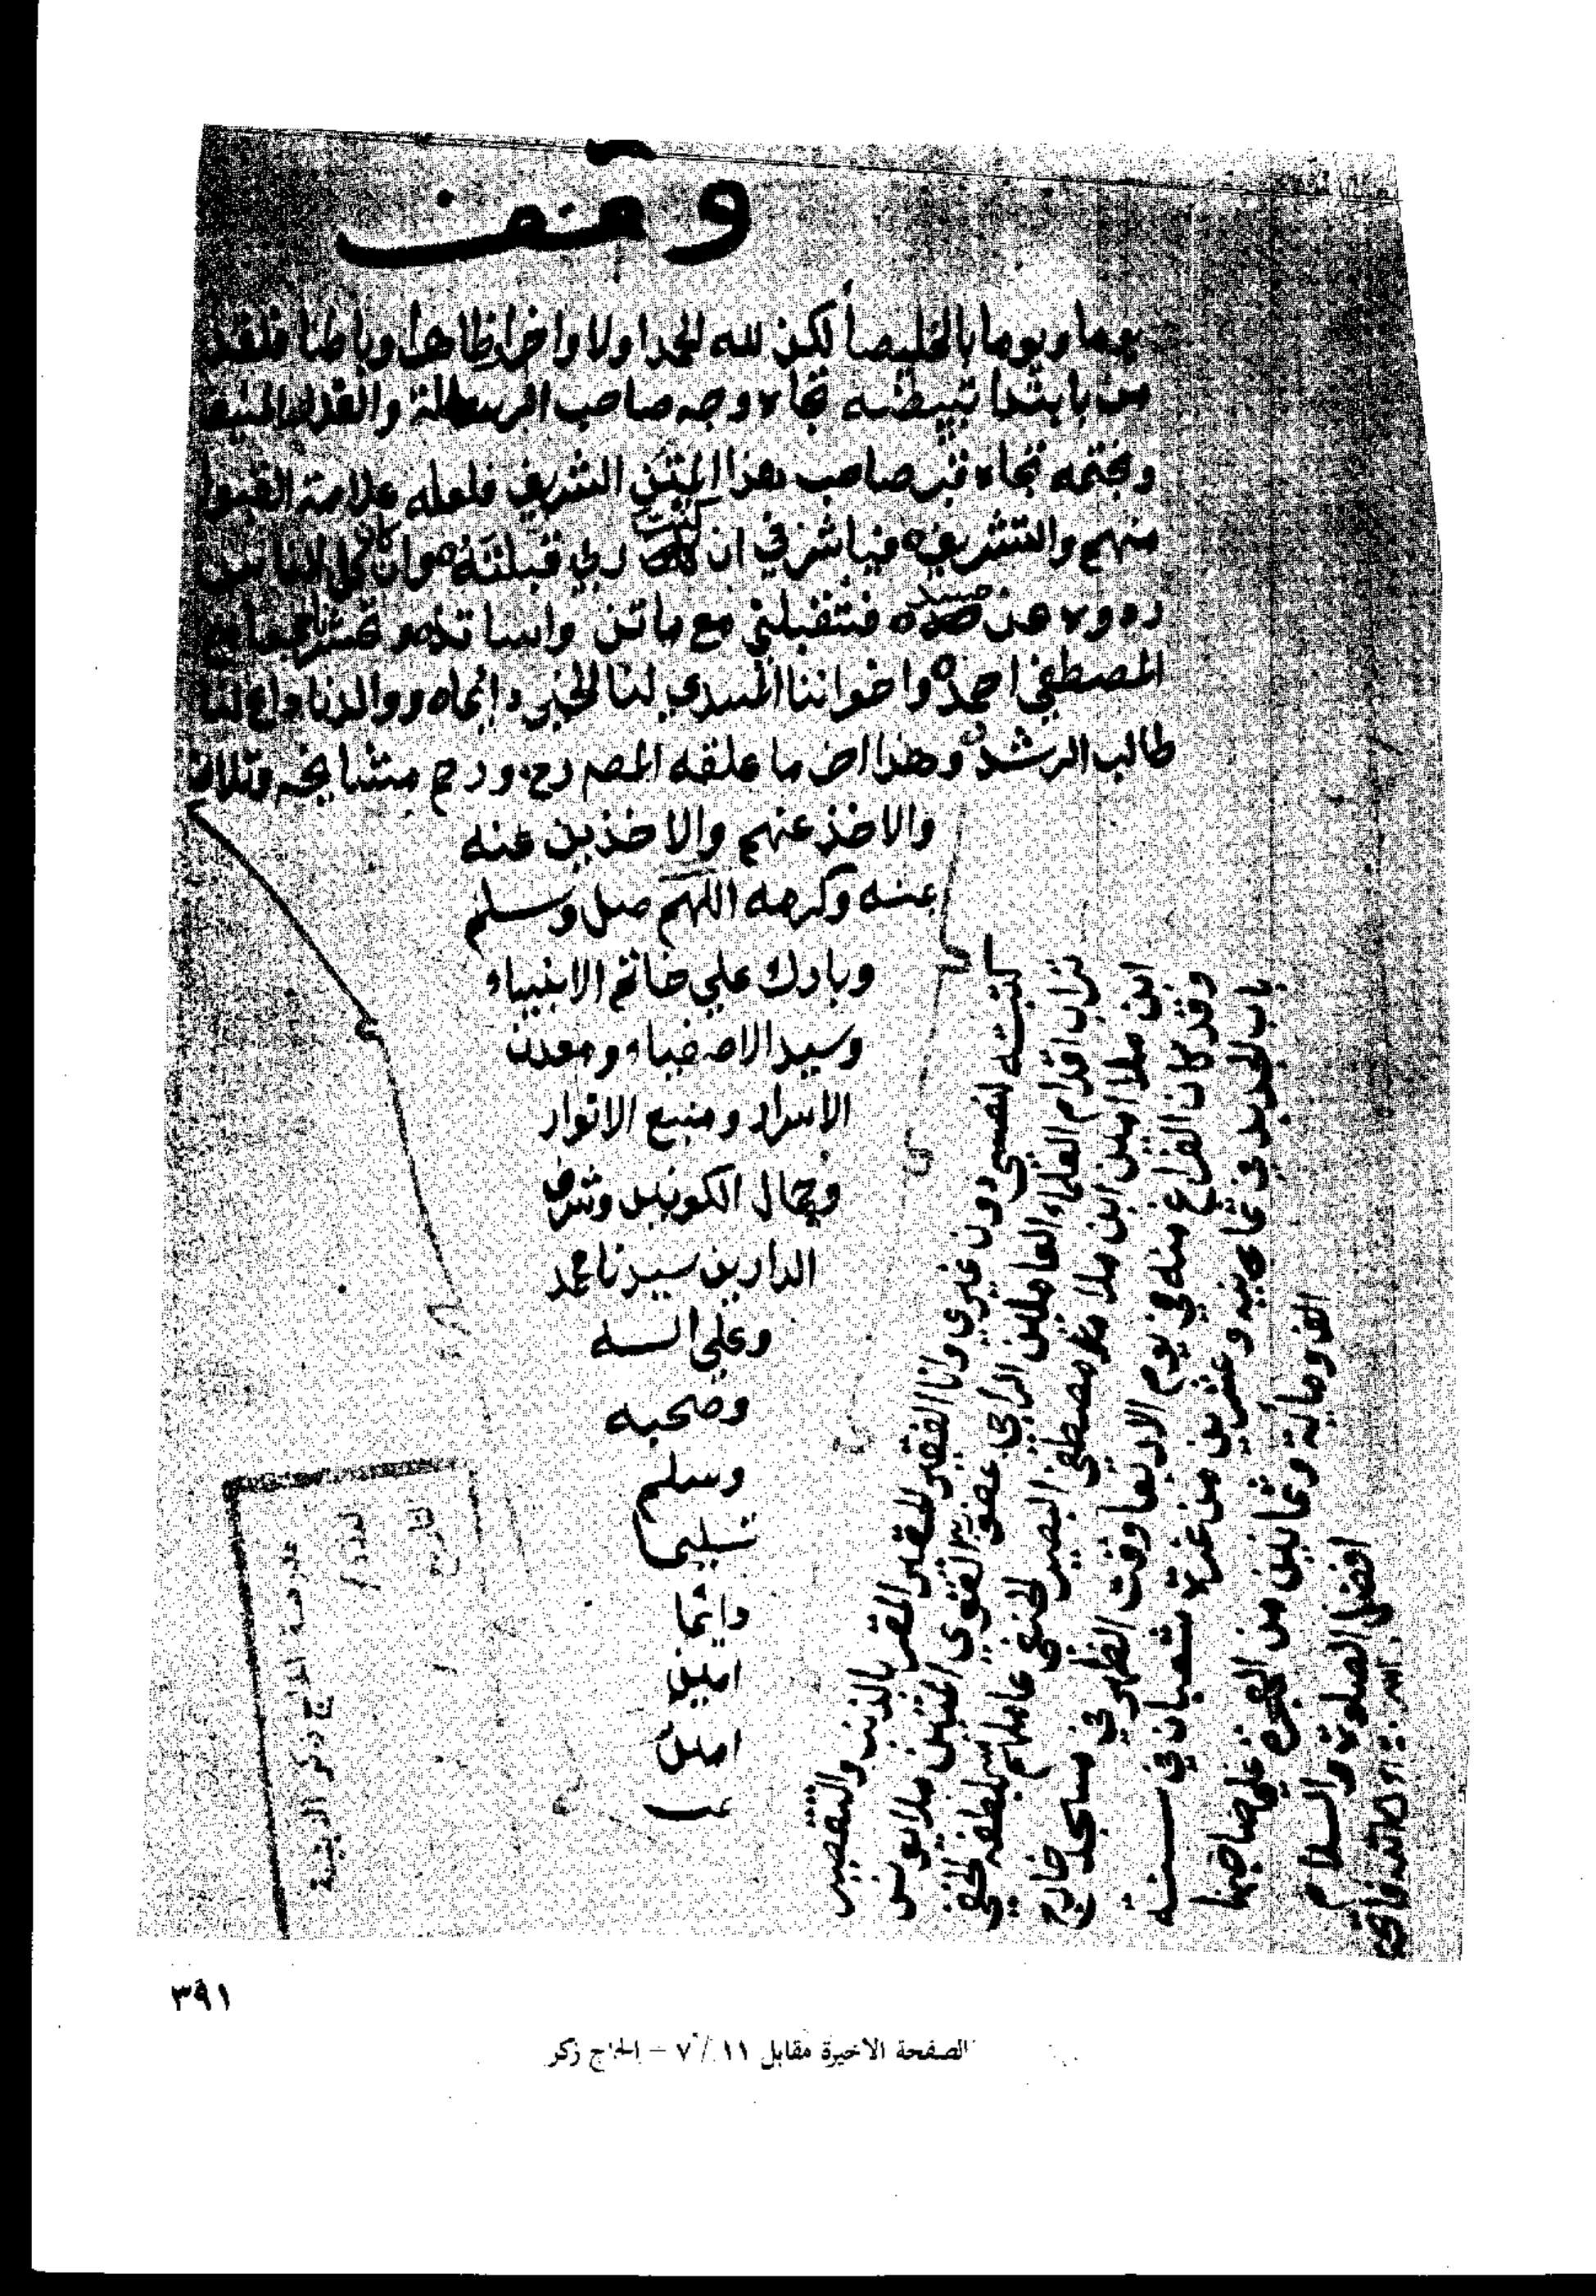 وقف
يوما ويوما بالخليصا لكن لله الحمد اولا واخرا ظاهرا وباطنا فلقد
من بابتدا تبييضه تجاه وجه صاحب الرسالة والقدر المنيف
وبختمه تجاه قبر صاحب هذا المتن الشريف فلعله علامة القبول
منهم والتشريف فياشرفي ان كنت ربي قبلته وان كان كل الناس
ردوه عن حسد فتقبلني مع ماتن واساتذ تحشرنا جمعا مع
المصطفى احمد واخواننا المسدي لنا الخير دائما ووالدنا داع لنا
طالب الرشد وهذا اخر ما علقه المصـ رح ورح مشايخه وتلاف
والاخذ عنهم والاخذين عنه
بمنه وكرمه اللهم صل وسلم
وبارك علي خاتم الانبياء
وسيد الاصفياء ومعدن
الاسرار ومنبع الانوار
وجمال الكونين وشرف
الدارين سيدنا محمد
وعلي اله
وصحبه
وسلم
تسليما
دائما
امين
امين
كتبته لنفسي دون غيري وانا الفقير الحقير المقر بالذنب والتقصير
تراب اقدام العلماء العاملين الراجي عفو ربه القوي المتين ملا يونس
ابن ملا امين ابن ملا مصطفى البصير الحنفي عاملهم بلطفه الخفي
وقد كان الفراغ منه في يوم الاربعا وقت الظهر في مسجد خارج
باب الجديد في ثمانيه وعشرين من غرة شعبان في سنة
الف ومائة وثمانين من الهجرة على صاحبها
افضل الصلوة والسلام
العدد /
التاريخ
الحاج ذكر
٣٩١
الصفحة الاخيرة مقابل ١١ / ٧ – الحاج زكر